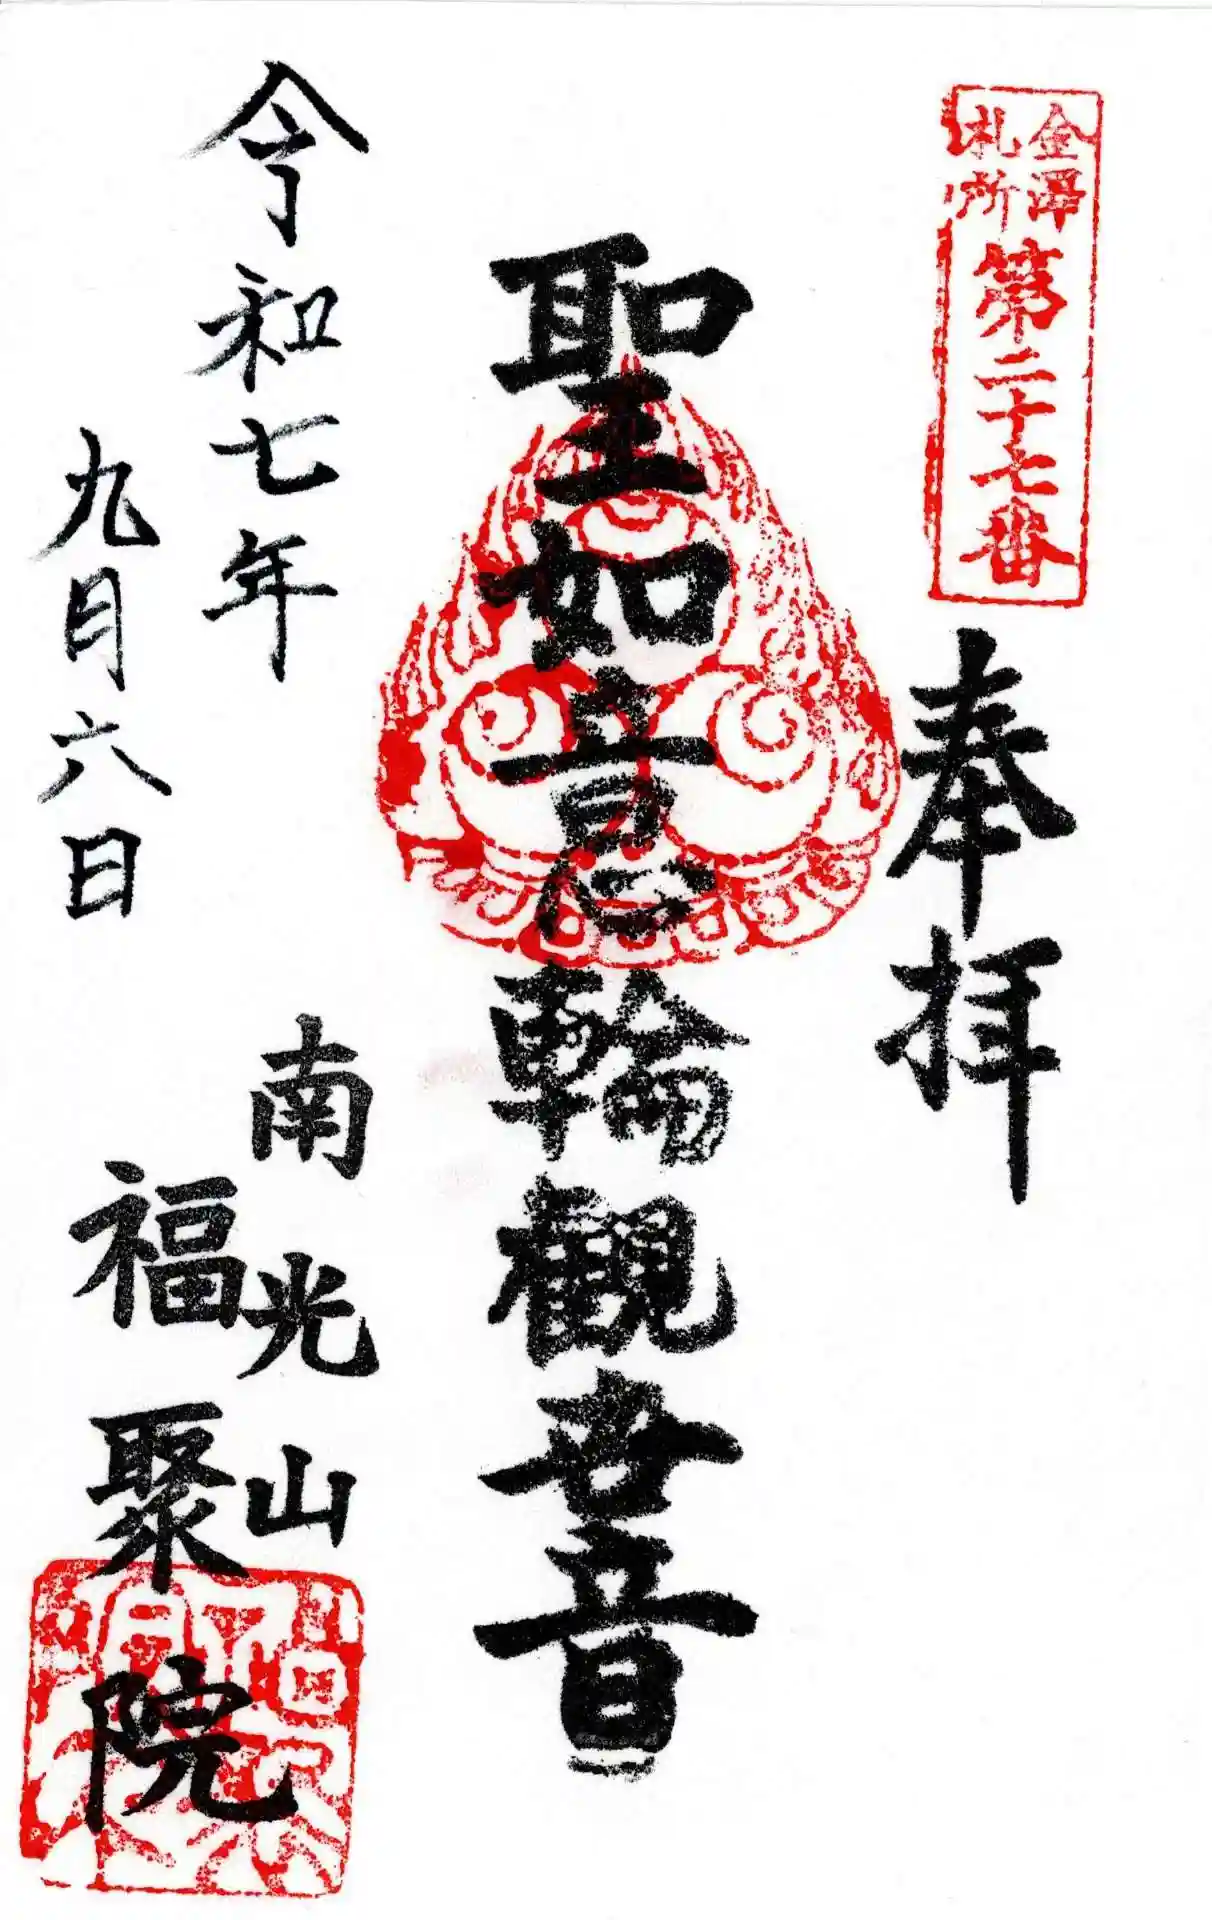 金澤
札所
第二十七番
奉拝
聖如意輪観世音
令和七年
九月六日
南光山
福聚院